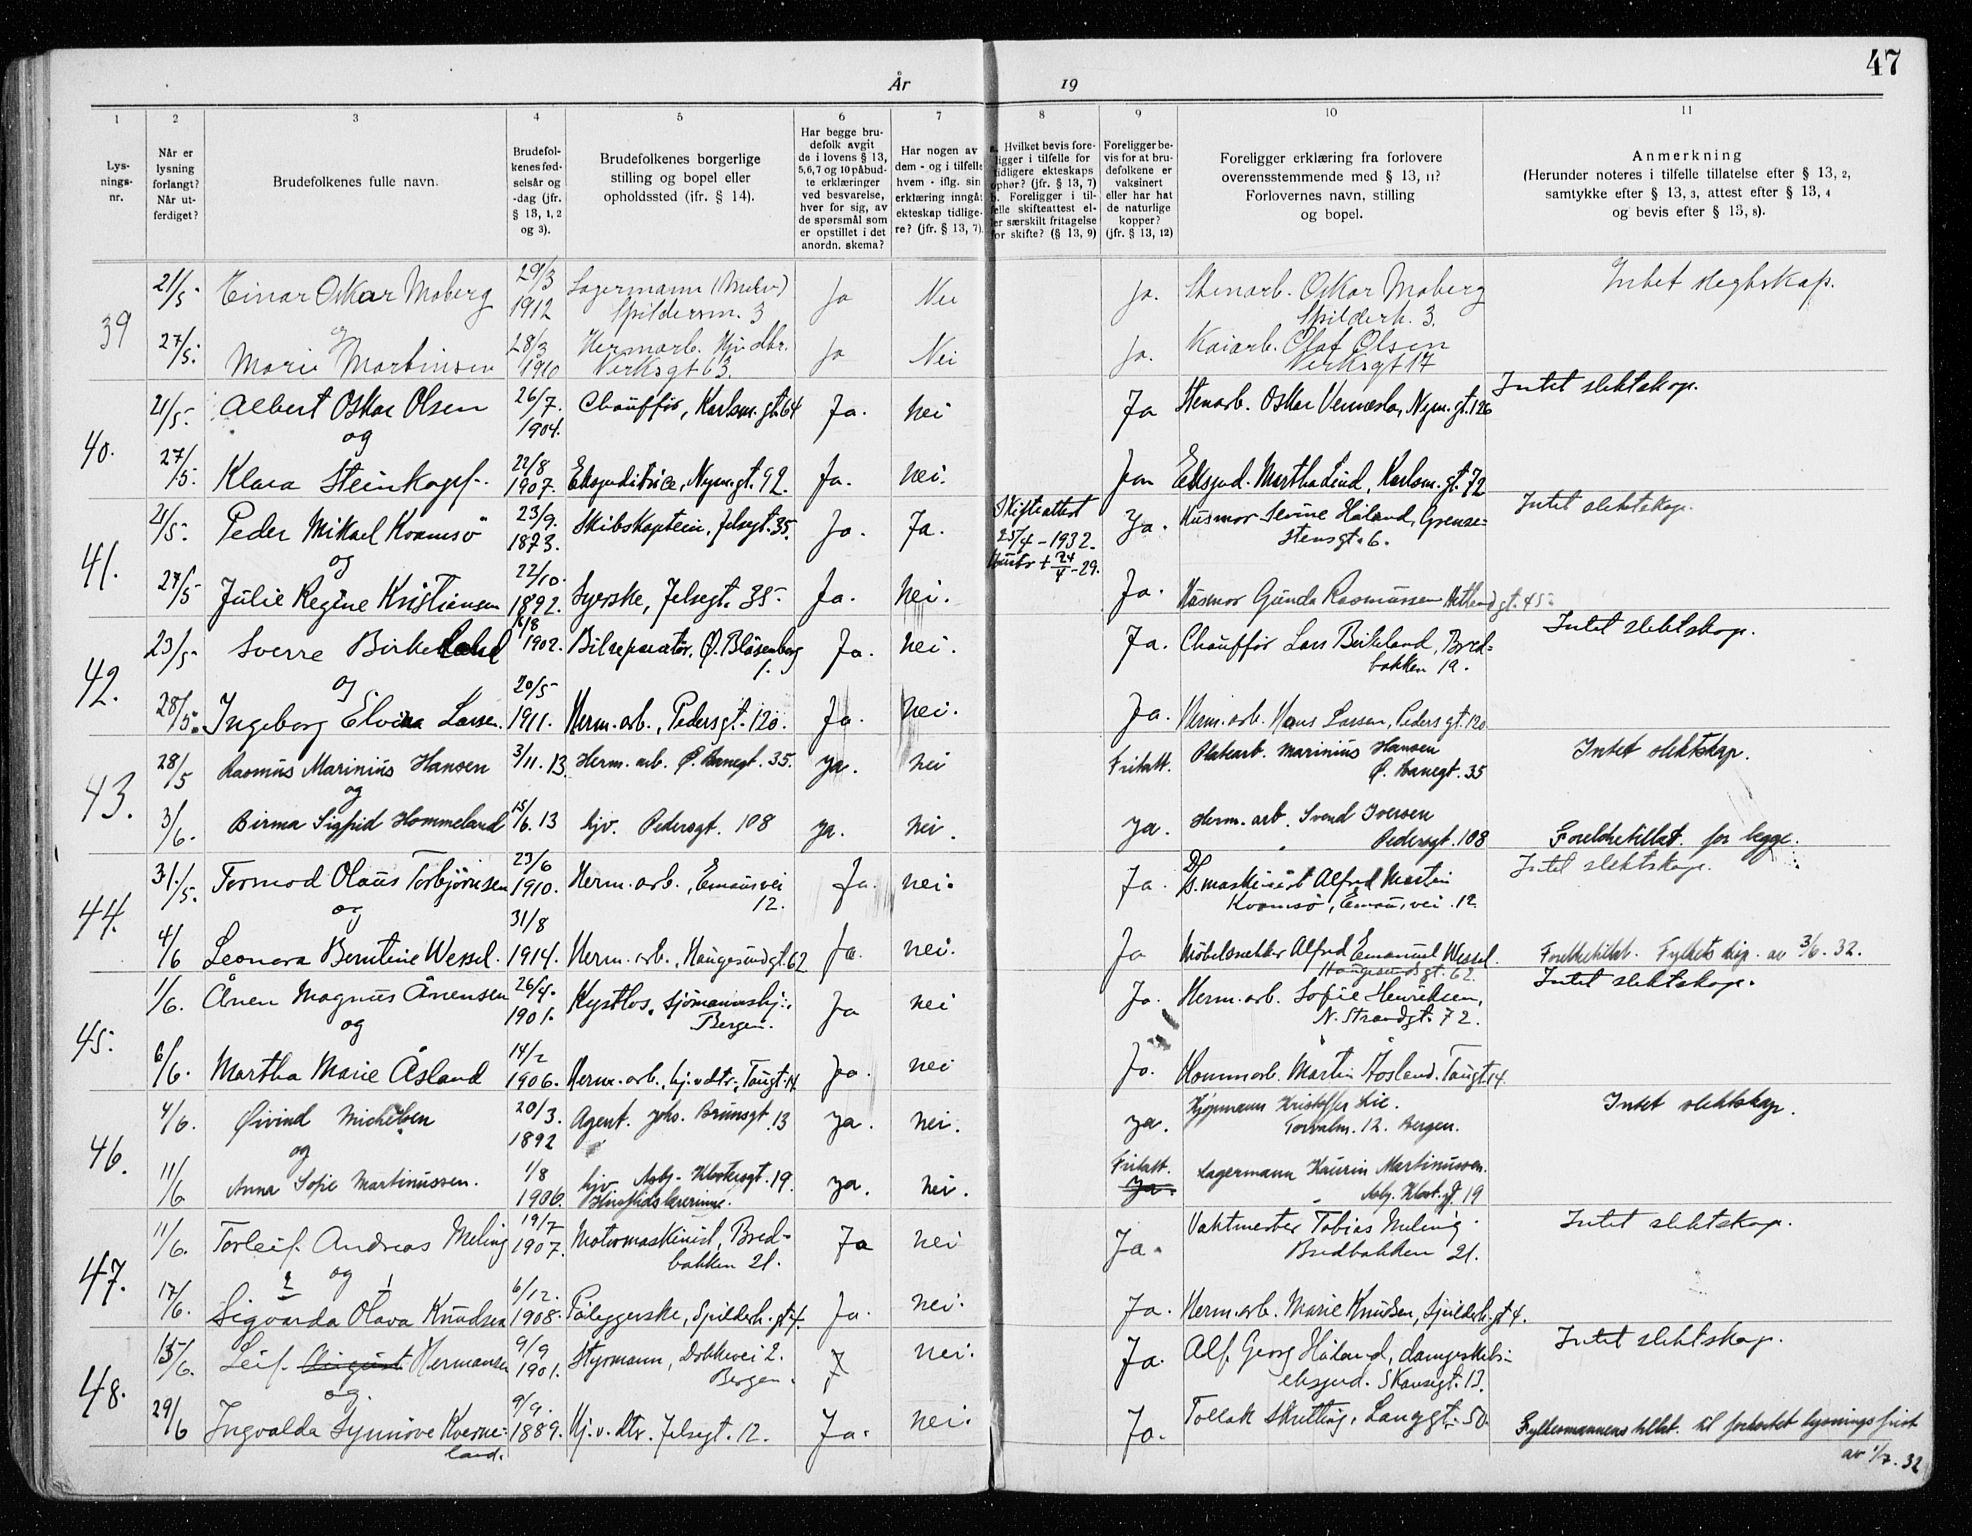 47
År 19
1 2 3 4 5 6 7 8 9 10 11
Lys-
nings-
nr.
Når er
lysning
forlangt?
Når ut-
ferdiget?
Brudefolkenes fulle navn.
Brudefol-
kenes fød-
selsår og
-dag (jfr.
§ 13, 1, 2
og 3).
Brudefolkenes borgerlige
stilling og bopel eller
opholdssted (jfr. § 14).
Har begge bru-
defolk avgit
de i lovens § 13,
5, 6, 7 og 10 påbud-
te erklæringer
ved besvarelse,
hver for sig, av
de spørsmål som
er opstillet i det
anordn. skema?
Har nogen av
dem - og i tilfelle
hvem - iflg. sin
erklæring inngåt
ekteskap tidlige-
re? (jfr. § 13, 7).
Hvilket bevis fore-
ligger i tilfelle for
tidligere ekteskaps
ophør? (jfr. § 13, 7)
b. Foreligger i til-
felle skifteattest el-
ler særskilt fritagelse
for skifte? (§ 13, 9)
Foreligger be-
vis for at bru-
defolkene er
vaksinert
eller har hat
de naturlige
kopper?
(jfr. § 13, 12)
Foreligger erklæring fra forlovere
overensstemmende med § 13, 11?
Forlovernes navn, stilling
og bopel.
Anmerkning
(Herunder noteres i tilfelle tillatelse efter § 13, 2,
samtykke efter § 13, 3, attest efter § 13, 4
og bevis efter § 13, 8).
39 21/5 Einar Oskar Moberg 29/3 1912 Lagermann Ja Nei Ja. Stenarb. Oskar Moberg Intet slegtskap.
3 Spilderh. 3.
og
27/5. Marie Martinsen 28/3 1910 Hermarb. Ja Nei Ja. Kaiarb. Olaf Olsen
Verksgt 63. Verksgt 17
40. 21/5 Albert Oskar Olsen 26/7. 1904. Chauffør, Karlsm.gt. 64 Ja. nei Ja Stenarb. Oskar Vennesla, Nym.gt. 126 Intet slektskap.
og
27/5 Klara Steinkopf. 22/8 1907. Ekspeditrice, Nym.gt. 92. Ja. nei. Ja Ekspd. Martha Lind, Karlsm.gt. 72
41. 21/5 Peder Mikael Kvamsø 23/9. 1873. Skibskaptein, Jelsgt. 35. Ja. Ja. Skifteattest Ja. Husmor Sevine Håland, Grense- Intet slektskap.
25/4 - 1932. stensgt. 6.
Hustr + 24/4 - 29.
og
27/5 Julie Regine Kristiensen 22/10. 1892. Syerske, Jelsgt. 35 Ja. nei. Ja. Husmor Gunda Rasmussen Hetlandgt. 45
42. 23/5 Sverre Birkeland 1902. Bilreparatør, Ø. Blåsenborg Ja. nei. Ja. Chauffør Lars Birkeland, Bred- Intet slektskap.
1. bakken 19.
og
28/5. Ingeborg Elvina Larsen. 20/5 1911. Herm. arb., Pedersgt. 120. Ja. nei. Ja. Herm. arb. Hans Larsen, Pedersgt. 120
43. 28/5 Rasmus Marinius Hansen 3/11. 13. Herm. arb. Ø. Banegt. 35. ja. nei Fritatt. Platearb. Marinius Hansen Intet slektskap.
Ø. Banegt. 35
og
3/6. Birma Sigfrid Hommeland 15/6. 13 hjv. Pedersgt. 108 ja. nei. ja. Herm. arb. Svend Iversen
Pedersgt. 108 Foreldretillat. for begge.
44. 31./5. Tormod Olaus Torbjørnsen 23/6 1910. Herm. arb., Emausvei Ja. nei. Ja. Ds. maskinist Alfred Martin Intet slektskap.
12. Kvamsø, Emausvei. 12.
og
4/6 Leonora Berntine Wessel. 31/8 1914. Herm. arb., Haugesundgt. 62 Ja. nei. Ja Møbelsnekker Alfred Emanuel Wessel. Foreldretillat. Fylkets disp. av 3/6. 32.
Haugesundsgt. 62.
45. 1/6. Ånen Magnus Ånensen 26/4. 1901. Kystlos, Sjømannshj. Ja nei Ja. Herm. arb. Sofie Henriksen, Intet slektskap.
Bergen. N. Strandgt. 72.
og
6/6. Martha Marie Åsland 14/2 1906. Herm. arb., hj. v dtr., Taugt. 14. Ja. nei Ja. Martin Åsland. Taugt 14.
46. 4/6. Øivind Michelsen 20/3. 1892 Agent. Johs. Brunsgt. 13 ja. nei. ja. Kjøpmann Kristoffer Lie. Intet slektskap.
Torvalm. 12. Bergen.
og
11/6 Anna Sofie Martinussen. 1/8 1906. hjv. Asbj. Klostersgt. 19. ja. nei. Fritatt. Lagermann Kaurin Martinussen.
Husflidslærerinne. ja. Asbj. Klost.gt. 19
47. 11/6. Torleif Andreas Meling 19/7 1907. Motormaskinist, Bred- Ja nei Ja. Vaktmester Tobias Meling Intet slektskap.
bakken 21. Bredbakken 21.
2 og 1
17/6. Sigvarda Olava Knudsen 6/12. 1908. Påleggerske, Spilderh.gt. 4. Ja. nei. Ja. Herm. arb. Marie Knudsen, Spilderh.gt 4.
48. 15/6. Leif August Hermansen 9/9 1901. Styrmann, Dokkevei 2. J nei. Ja. Alf. Georg Håland, dampskibs- Intet slektskap.
Bergen. ekspd. Skansegt. 13.
og.
29/6 Ingvalda Synnøve Kverne- 9/9. 1889. Hj. v. dtr. Jelsgt. 12. Ja. nei. Ja. Tollak Skretting, Langgt. 50. Fylkesmannens tillat. til forkortet lysningsfrist
land. av 1/7. 32